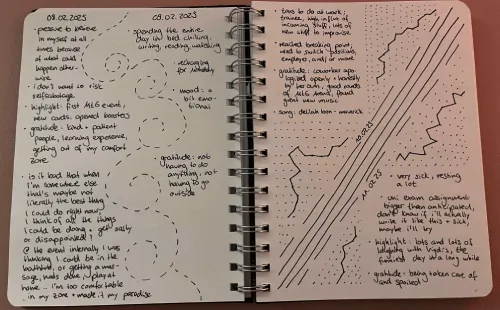 08.02.2025
• pressure to believe
in myself at all
times because
of what could
happen other-
wise
• i don't want to risk
selfsabotage
• highlight: first MtG event,
new cards, opened boosters
• gratitude: kind + patient
people, learning experience,
getting out of my comfort
zone
• is it bad that when
I'm somewhere else
that's maybe not
literally the best thing
I could do right now,
I think of all the things
I could be doing + get salty
or disappointed?
@ the event internally I was
thinking I could be in the
bathtub, or getting a mas-
sage, nails done, play at
home... I'm too comfortable
in my zone + made it my paradise
09.02.2025
spending the entire
day in bed chilling,
writing, reading, watching
• reckoning
for
mood: a
bit emo-
tional
gratitude: not
having to do
anything, not
having to go
outside
• tons to do at work:
trainee, high influx of
incoming stuff, lots of
new stuff to improvise
• reached breaking point,
need to switch positions,
employer, and/or more
• gratitude: coworker apo-
logized openly + honestly
by her own, good rounds
of MtG Arena, found
great new music
• song: delilah bon - maverick
10.02.25
11.02.25
• very sick, resting
a lot
• uni exam assignment
bigger than anticipated,
don't know if i'll actually
write it like this + sick,
maybe i'll try
highlight: lots and lots of
with the
funniest clay in a long while
gratitude: being taken care of
and spoiled